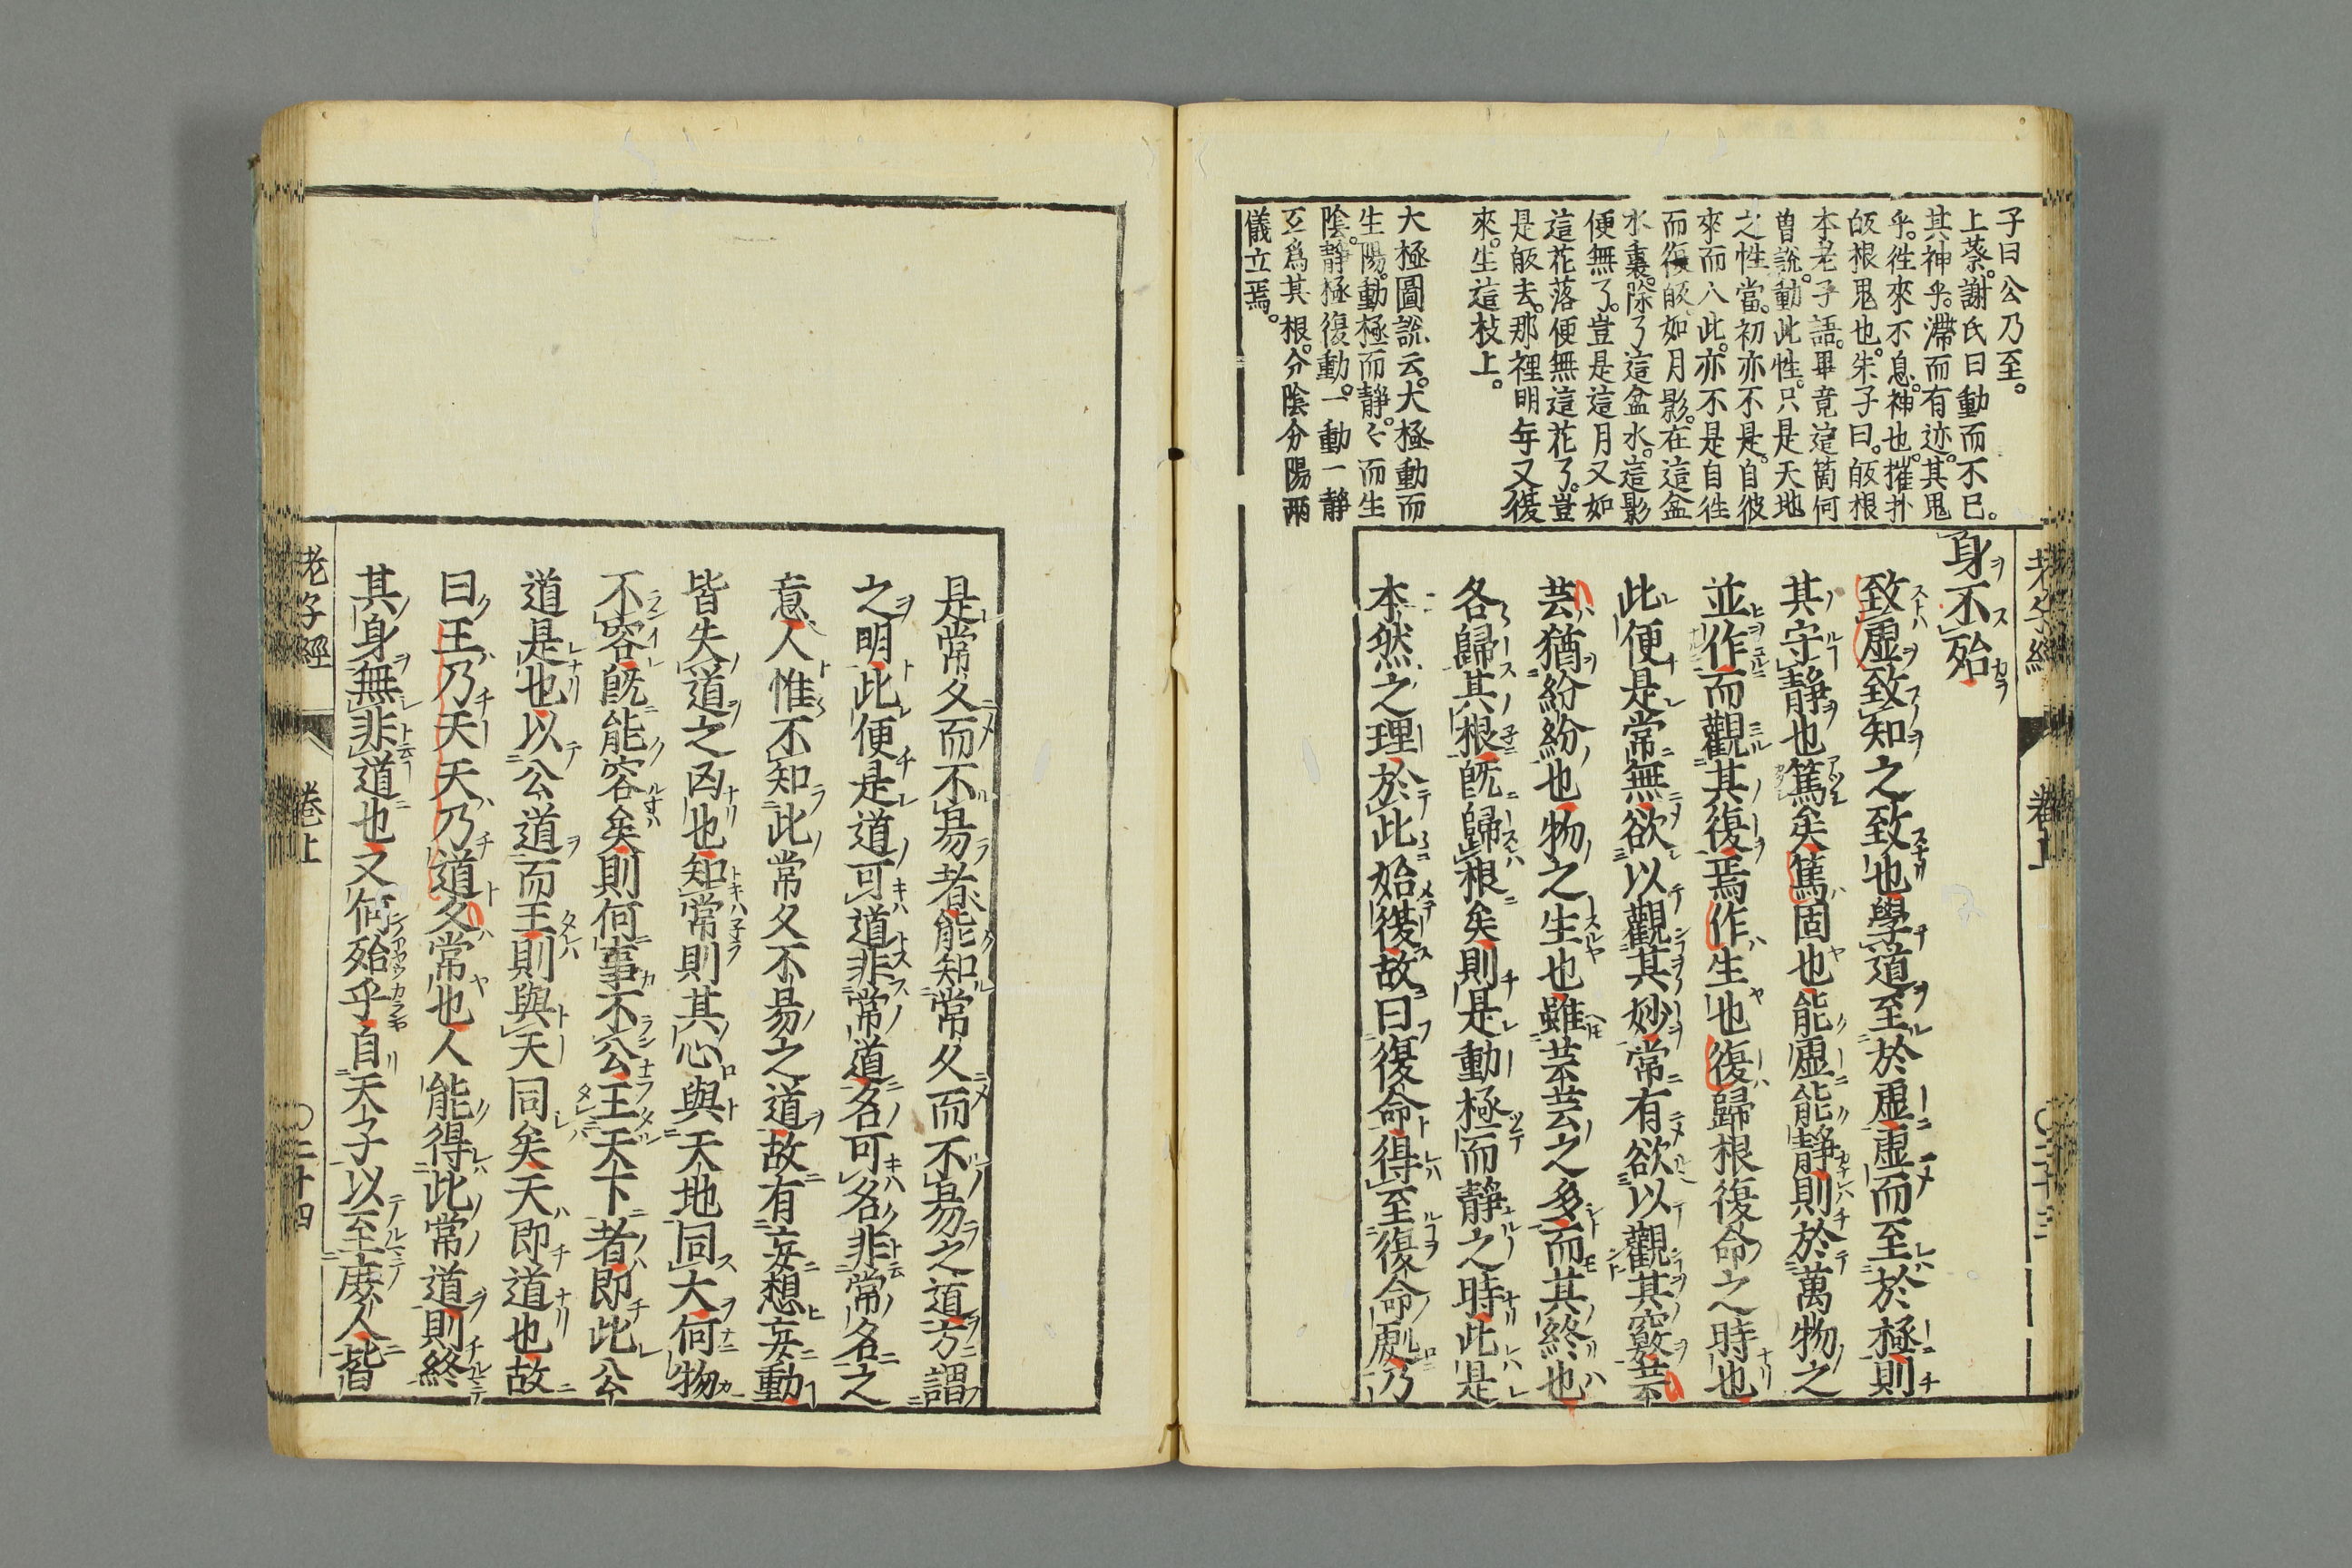 子曰公乃至。
上蔡。謝氏曰動而不已。
其神乎。滯而有迹。其鬼
乎。徃來不息。神也。摧扑
皈根鬼也。朱子曰。皈根
本老子語。畢竟這箇何
曽說。動此性。只是天地
之性。當初亦不是。自彼
來而入此。亦不是自徃
而復皈。如月影。在這盆
水裏。除了這盆水。這影
便無了。豈是這月又如
這花落便無這花了。豈
是皈去。那裡明年又復
來。生這枝上。
大極圖說云。大極動而
生陽。動極而靜。々而生
陰。靜極復動。一動一靜
互爲其根。分陰分陽兩
儀立焉。
身不殆
致虛致知之致也學道至於虛虛而至於極則
其守靜也篤矣篤固也能虛能靜則於萬物之
並作而觀其復焉作生也復歸根復命之時也
此便是常無欲以觀其妙常有欲以觀其竅芸
芸猶紛紛也物之生也雖芸芸之多而其終也
各歸其根既歸根矣則是動極而靜之時此是
本然之理於此始復故曰復命得至復命處乃
老子經 卷上 〇二十三
是常久而不昜者能知常久而不昜之道方謂
之明此便是道可道非常道名可名非常名之
意人惟不知此常久不昜之道故有妄想妄動
皆失道之凶也知常則其心與天地同大何物
不容既能容矣則何事不公王天下者即此公
道是也以公道而王則與天同矣天即道也故
曰王乃天天乃道久常也人能得此常道則終
其身無非道也又何殆乎自天子以至庶人皆
老子經 卷上 〇二十四